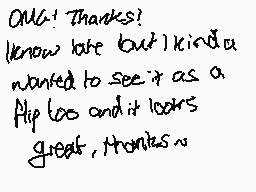 OMG! Thanks!
I know late but I kinda
wanted to see it as a
flip too and it looks
great, thanks ~